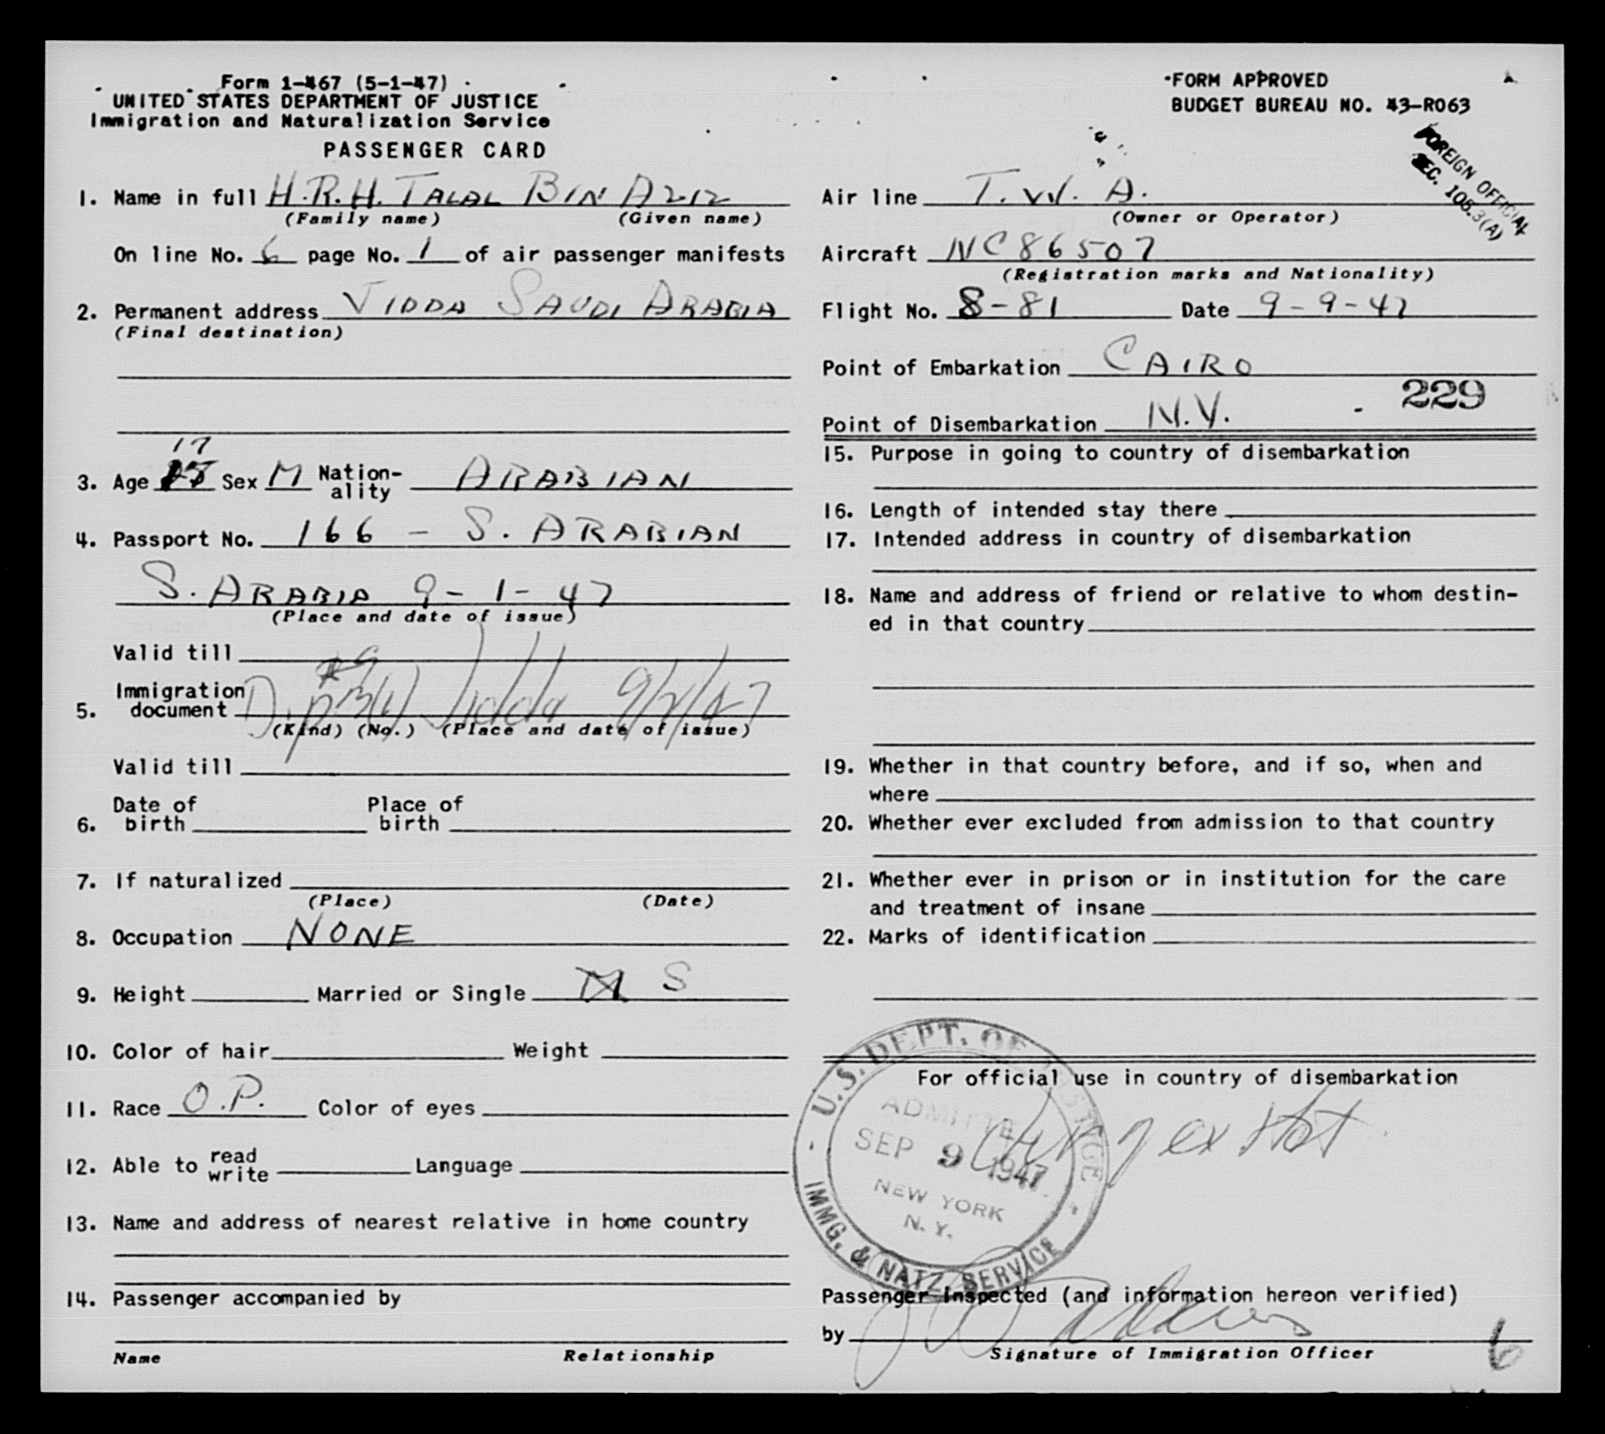 Form 1-467 (5-1-47)
UNITED STATES DEPARTMENT OF JUSTICE
Immigration and Naturalization Service
PASSENGER CARD
1. Name in full H.R.H. TALAL BIN AZIZ
(Family name) (Given name)
On line No. 6 page No. 1 of air passenger manifests
2. Permanent address JIDDA SAUDI ARABIA
(Final destination)
17
3. Age Sex M Nation-ality ARABIAN
4. Passport No. 166 - S. ARABIAN
S. ARABIA 9-1-47
(Place and date of issue)
Valid till
5. Immigration document Dip 3(1) Jidda 9/2/47
(Kind) (No.) (Place and date of issue)
Valid till
6. Date of birth Place of birth
7. If naturalized
(Place) (Date)
8. Occupation NONE
9. Height Married or Single M S
10. Color of hair Weight
11. Race O.P. Color of eyes
12. Able to read write Language
13. Name and address of nearest relative in home country
14. Passenger accompanied by
Name Relationship
FORM APPROVED
BUDGET BUREAU NO. 43-R063
FOREIGN OFFICIAL
SEC. 105.3(A)
Air line T.W.A.
(Owner or Operator)
Aircraft NC86507
(Registration marks and Nationality)
Flight No. 8-81 Date 9-9-47
Point of Embarkation CAIRO
229
Point of Disembarkation N.Y.
15. Purpose in going to country of disembarkation
16. Length of intended stay there
17. Intended address in country of disembarkation
18. Name and address of friend or relative to whom destin-
ed in that country
19. Whether in that country before, and if so, when and
where
20. Whether ever excluded from admission to that country
21. Whether ever in prison or in institution for the care
and treatment of insane
22. Marks of identification
For official use in country of disembarkation
U.S. DEPT. OF JUSTICE
ADMITTED
SEP 9 1947
NEW YORK
N.Y.
IMMG. & NATZ. SERVICE
Passenger inspected (and information hereon verified)
by
Signature of Immigration Officer
6